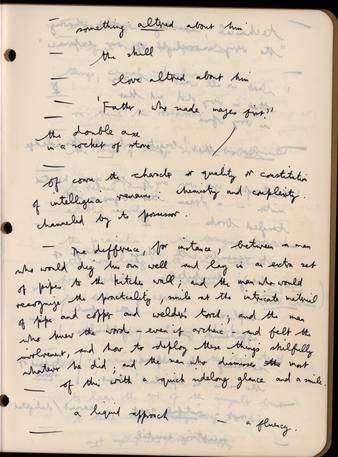 — something altered about him
— the skill
— love altered about him
— 'Father, who made mazes first?'
the double axe
in a socket of stone
— of course the character or quality or constitution
of intelligence remains. chemistry and complexity.
channeled by its possessor.
— The difference, for instance, between a man
who would dig his own well and lay in an extra set
of pipes to the kitchen well; and the man who would
recognize the practicality, smile at the intricate material
of pipe and copper and welder's torch; and the man
who knew the words – even if archaic – and felt the
involvement, and how to deploy these things skilfully
whatever he did; and the man who dismisses the most
of this with a quick sidelong glance and a smile.
— a liquid approach — a fluency.